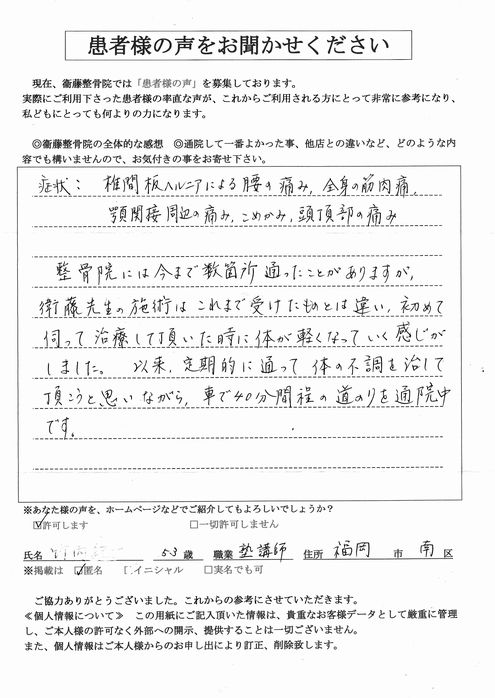 患者様の声をお聞かせください
現在、衞藤整骨院では「患者様の声」を募集しております。
実際にご利用下さった患者様の率直な声が、これからご利用される方にとって非常に参考になり、
私どもにとっても何よりの力になります。
◎衞藤整骨院の全体的な感想　◎通院して一番よかった事、他店との違いなど、どのような内
容でも構いませんので、お気付きの事をお寄せ下さい。
症状： 椎間板ヘルニアによる腰の痛み, 全身の筋肉痛,
顎関接周辺の痛み, こめかみ, 頭頂部の痛み
整骨院には今まで数箇所通ったことがありますが,
衛藤先生の施術はこれまで受けたものとは違い, 初めて
伺って治療して頂いた時に体が軽くなっていく感じが
しました。 以来, 定期的に通って体の不調を治して
頂こうと思いながら, 車で40分間程の道のりを通院中
です。
※あなた様の声を、ホームページなどでご紹介してもよろしいでしょうか？
☑許可します　□一切許可しません
氏名 53歳 職業 塾講師 住所 福岡 市 南 区
※掲載は ☑匿名 □イニシャル □実名でも可
ご協力ありがとうございました。これからの参考にさせていただきます。
≪個人情報について≫　この用紙にご記入頂いた情報は、貴重なお客様データとして厳重に管理
し、ご本人様の許可なく外部への開示、提供することは一切ございません。
また、個人情報はご本人様からのお申し出により訂正、削除致します。